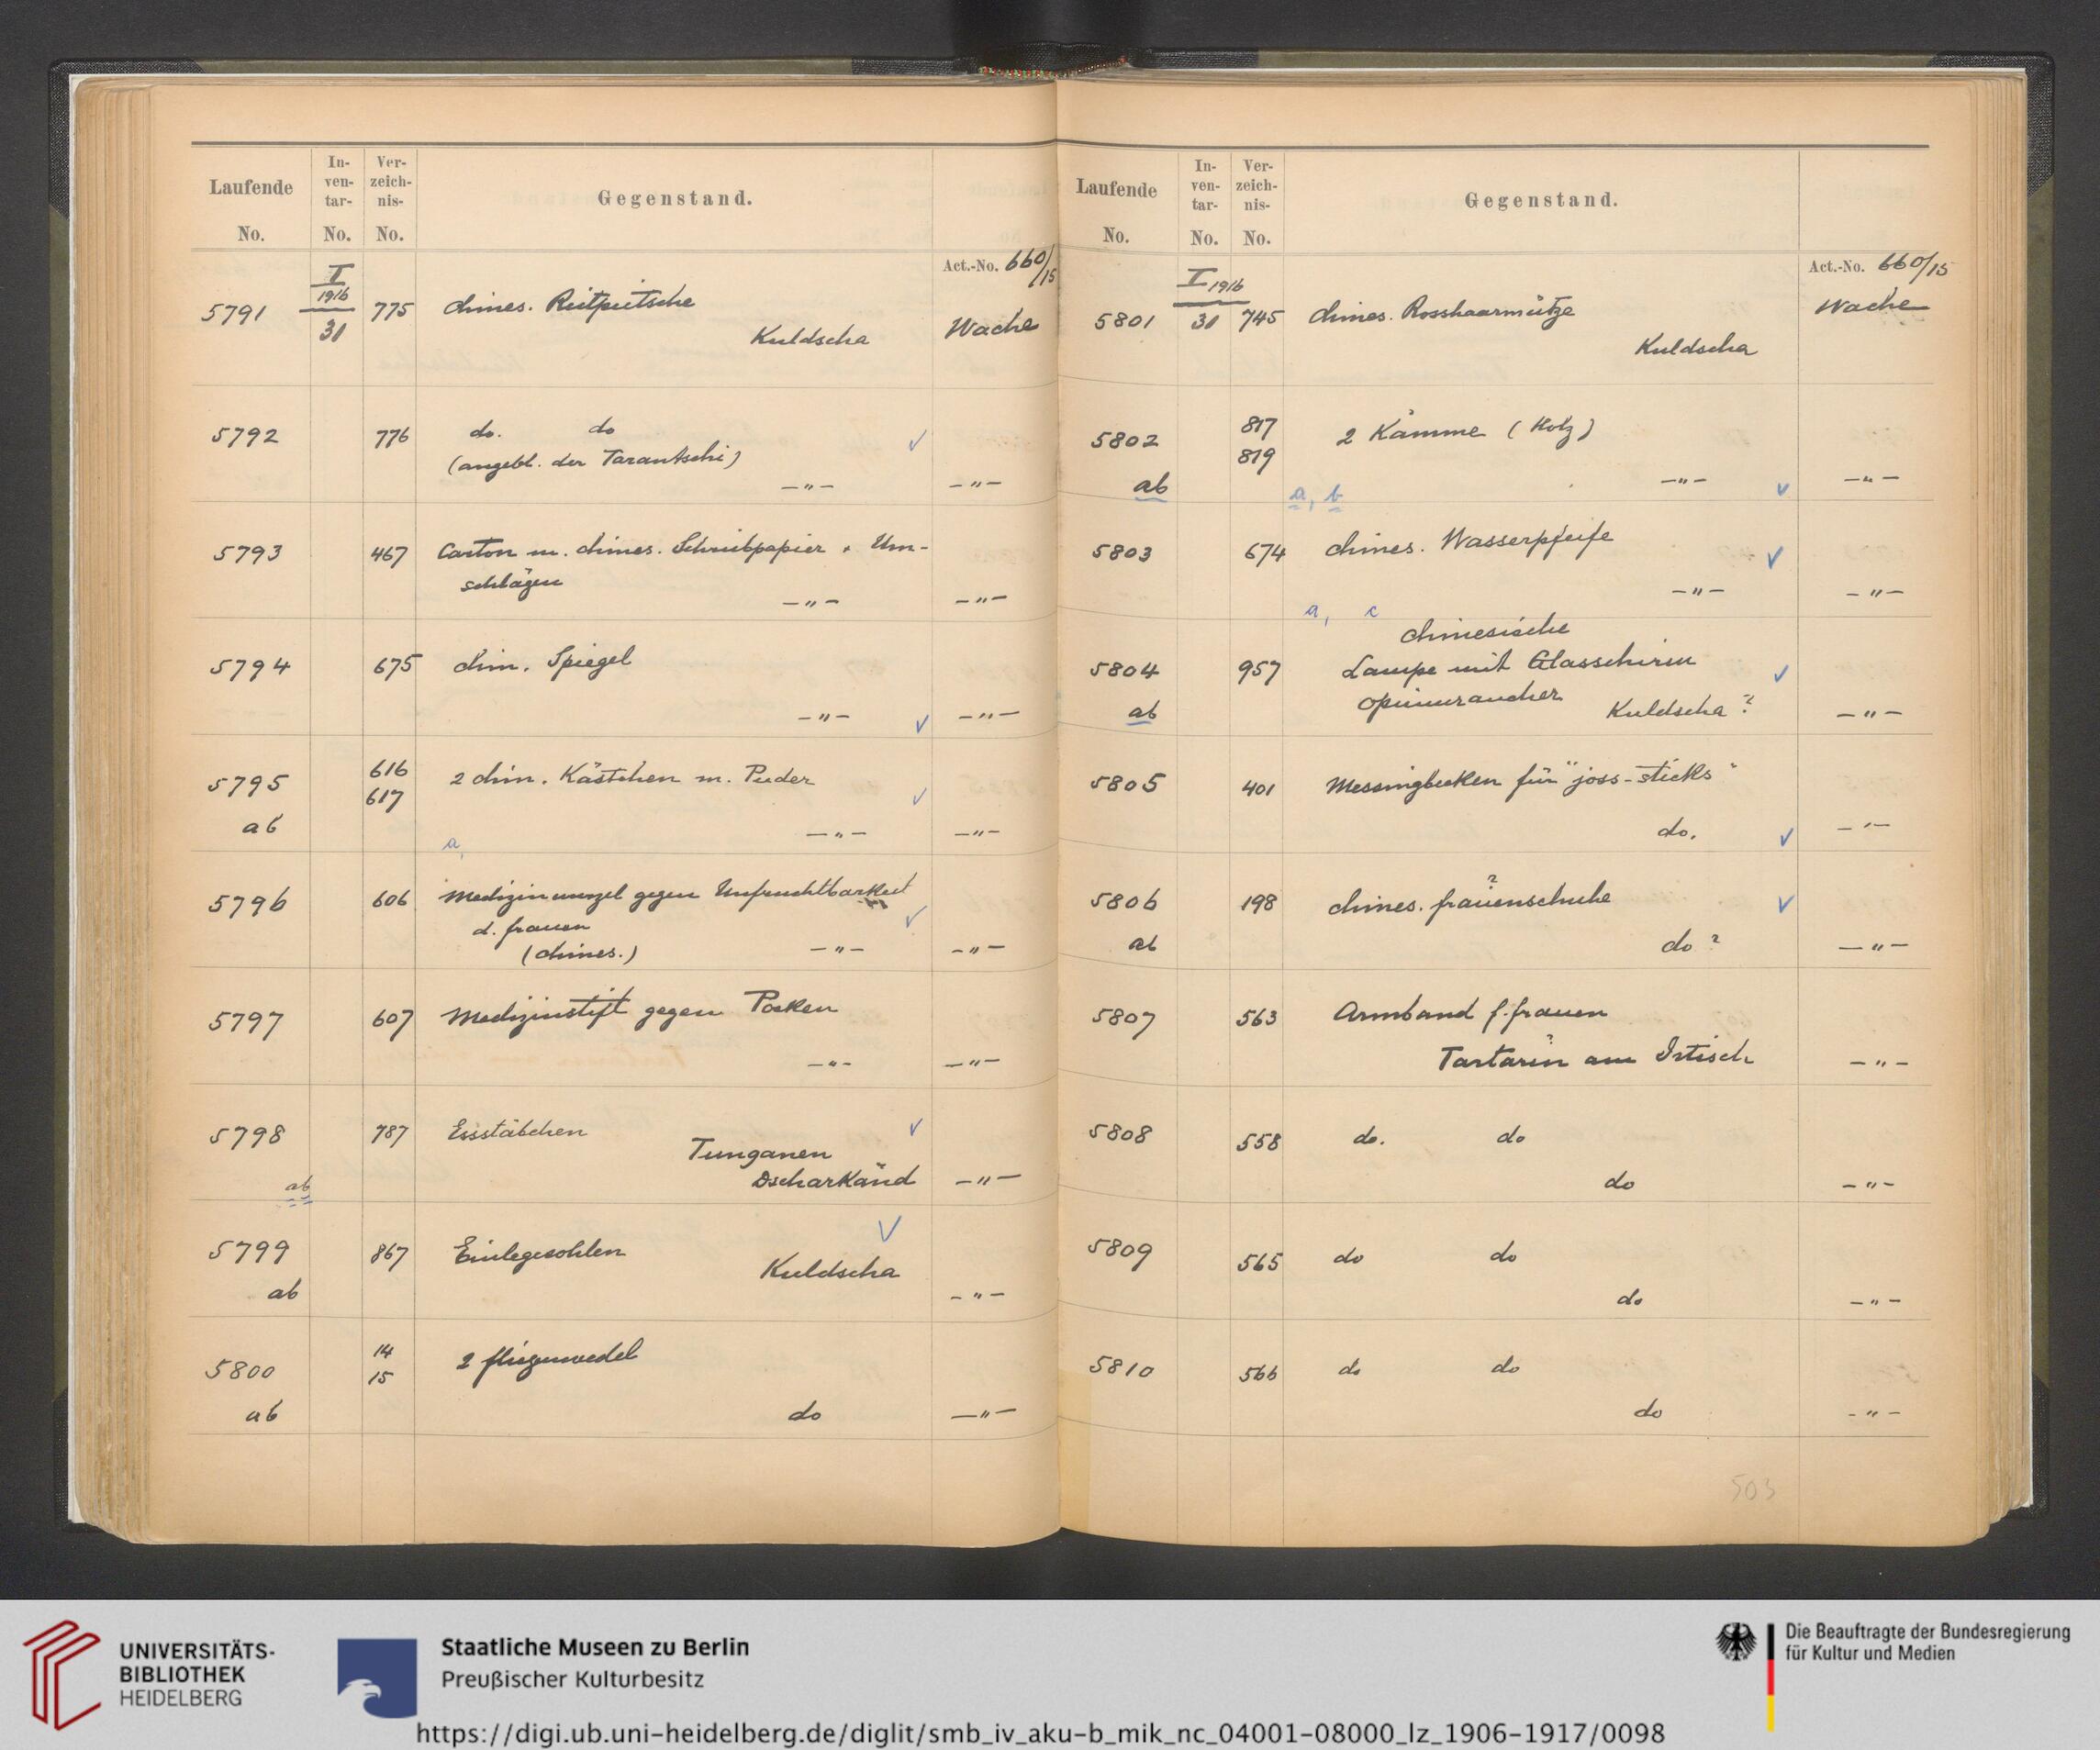 Laufende No. In-ven-tar-No. Ver-zeich-nis-No. Gegenstand.
Act.-No. 660/15
5791 I 1916 31 775 chines. Reitpeitsche
Kuldscha Wache
5792 776 do. do
(angebl. der Tarantschi)
—"— —"—
5793 467 Carton m. chines. Schreibpapier + Um-
schlägen
—"— —"—
5794 675 chin. Spiegel
—"— —"—
5795 616 2 chin. Kästchen m. Puder
617
ab a, —"— —"—
5796 606 Medizinwurzel gegen Unfruchtbarkeit
d. frauen
(chines.) —"— —"—
5797 607 Medizinstift gegen Pocken
—"— —"—
5798 787 Essstäbchen
Tunganen
ab Dscharkänd —"—
5799 867 Einlegesohlen
Kuldscha
ab —"—
5800 14 2 fliegenwedel
15
ab do —"—
Laufende No. In-ven-tar-No. Ver-zeich-nis-No. Gegenstand.
Act.-No. 660/15
5801 I 1916 31 745 chines. Rosshaarmütze Wache
Kuldscha
5802 817 2 Kämme (Holz)
819
ab a, b —"— —"—
5803 674 chines. Wasserpfeife
—"— —"—
a, c
chinesische
5804 957 Lampe mit Glasschirm
opiumraucher
ab Kuldscha? —"—
5805 401 Messingbecken für "joss-sticks"
do. —"—
5806 198 chines. frauenschuhe ?
ab do? —"—
5807 563 Armband f. frauen
Tartarin? am Irtisch —"—
5808 558 do. do
do —"—
5809 565 do do
do —"—
5810 566 do do
do —"—
503
UNIVERSITÄTS-
BIBLIOTHEK
HEIDELBERG
Staatliche Museen zu Berlin
Preußischer Kulturbesitz
Die Beauftragte der Bundesregierung
für Kultur und Medien
https://digi.ub.uni-heidelberg.de/diglit/smb_iv_aku-b_mik_nc_04001-08000_lz_1906-1917/0098